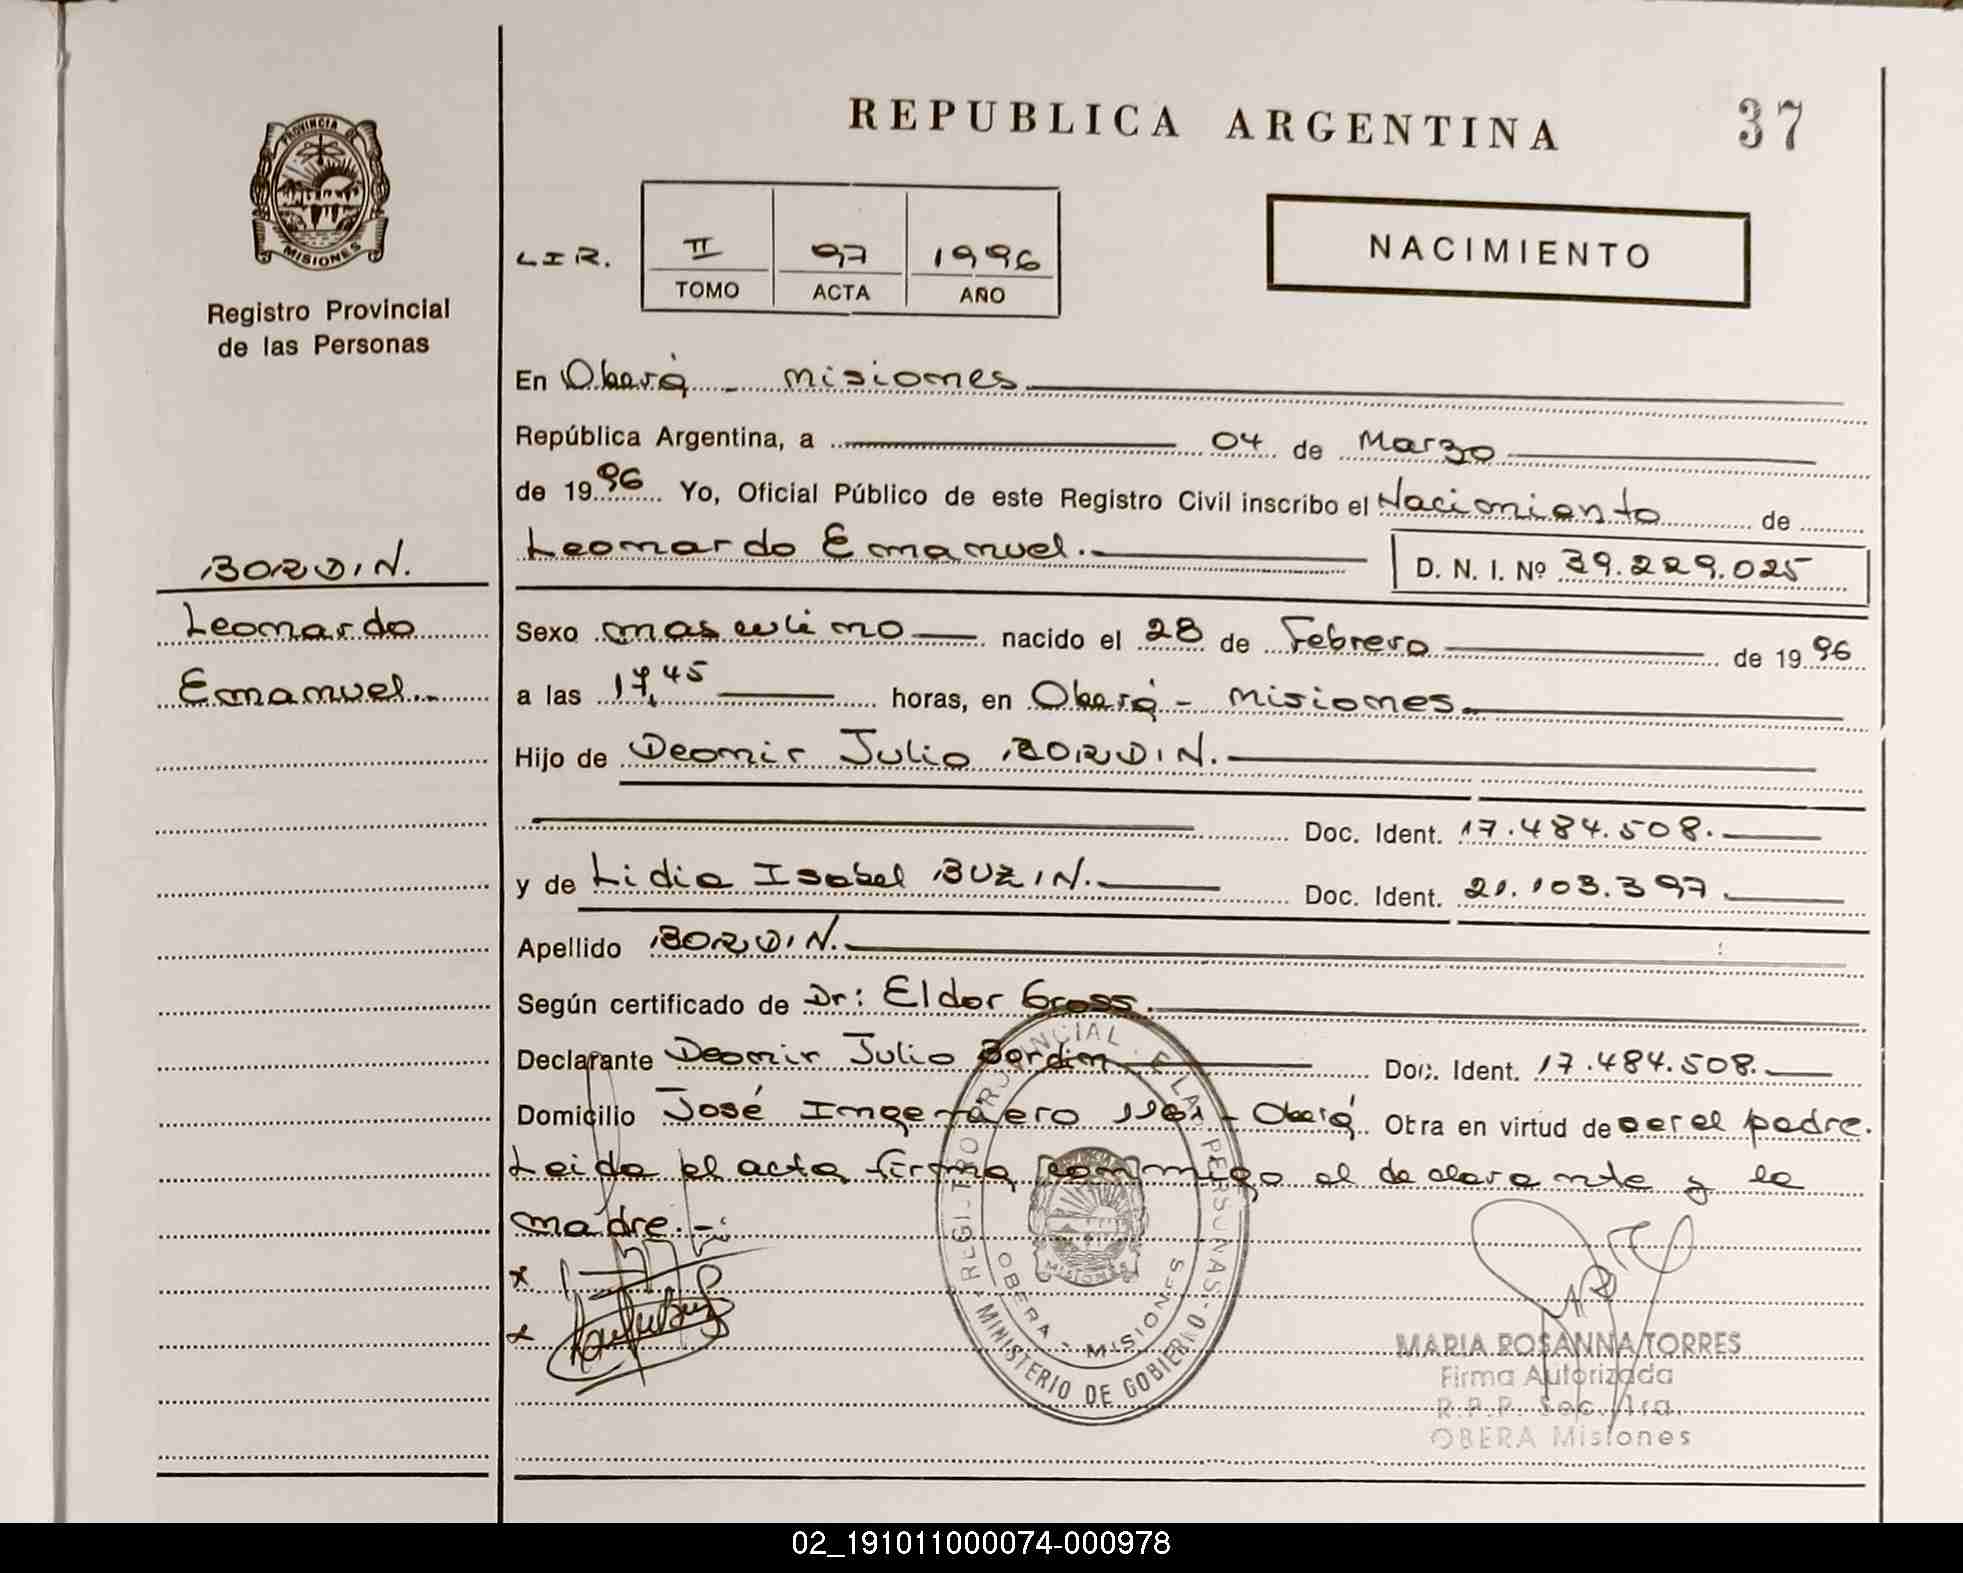 REPUBLICA ARGENTINA
37
PROVINCIA DE
MISIONES
Registro Provincial
de las Personas
L I R.
II
97
1996
TOMO
ACTA
AÑO
NACIMIENTO
En Oberá - Misiones
República Argentina, a 04 de Marzo
de 1996 Yo, Oficial Público de este Registro Civil inscribo el Nacimiento de
Leonardo Emanuel.-
D. N. I. Nº 39.229.025
BORDIN.
Leonardo
Emanuel.-
Sexo masculino nacido el 28 de Febrero de 1996
a las 17,45 horas, en Oberá - Misiones
Hijo de Deomir Julio BORDIN.
Doc. Ident. 17.484.508.
y de Lidia Isabel BUZIN.- Doc. Ident. 21.103.397
Apellido BORDIN.-
Según certificado de Dr: Eldor Gross.
Declarante Deomir Julio Bordin Doc. Ident. 17.484.508.
Domicilio José Ingeniero - Oberá. Otra en virtud de ser el padre.
Leida el acta firma conmigo el declarante y la
madre.-
x
x
REGISTRO PROVINCIAL DE LAS PERSONAS
OBERA - MISIONES
MINISTERIO DE GOBIERNO
MISIONES
MARIA ROSANNA TORRES
Firma Autorizada
R.P.P. Sec. 1ra.
OBERA Misiones
02_191011000074-000978